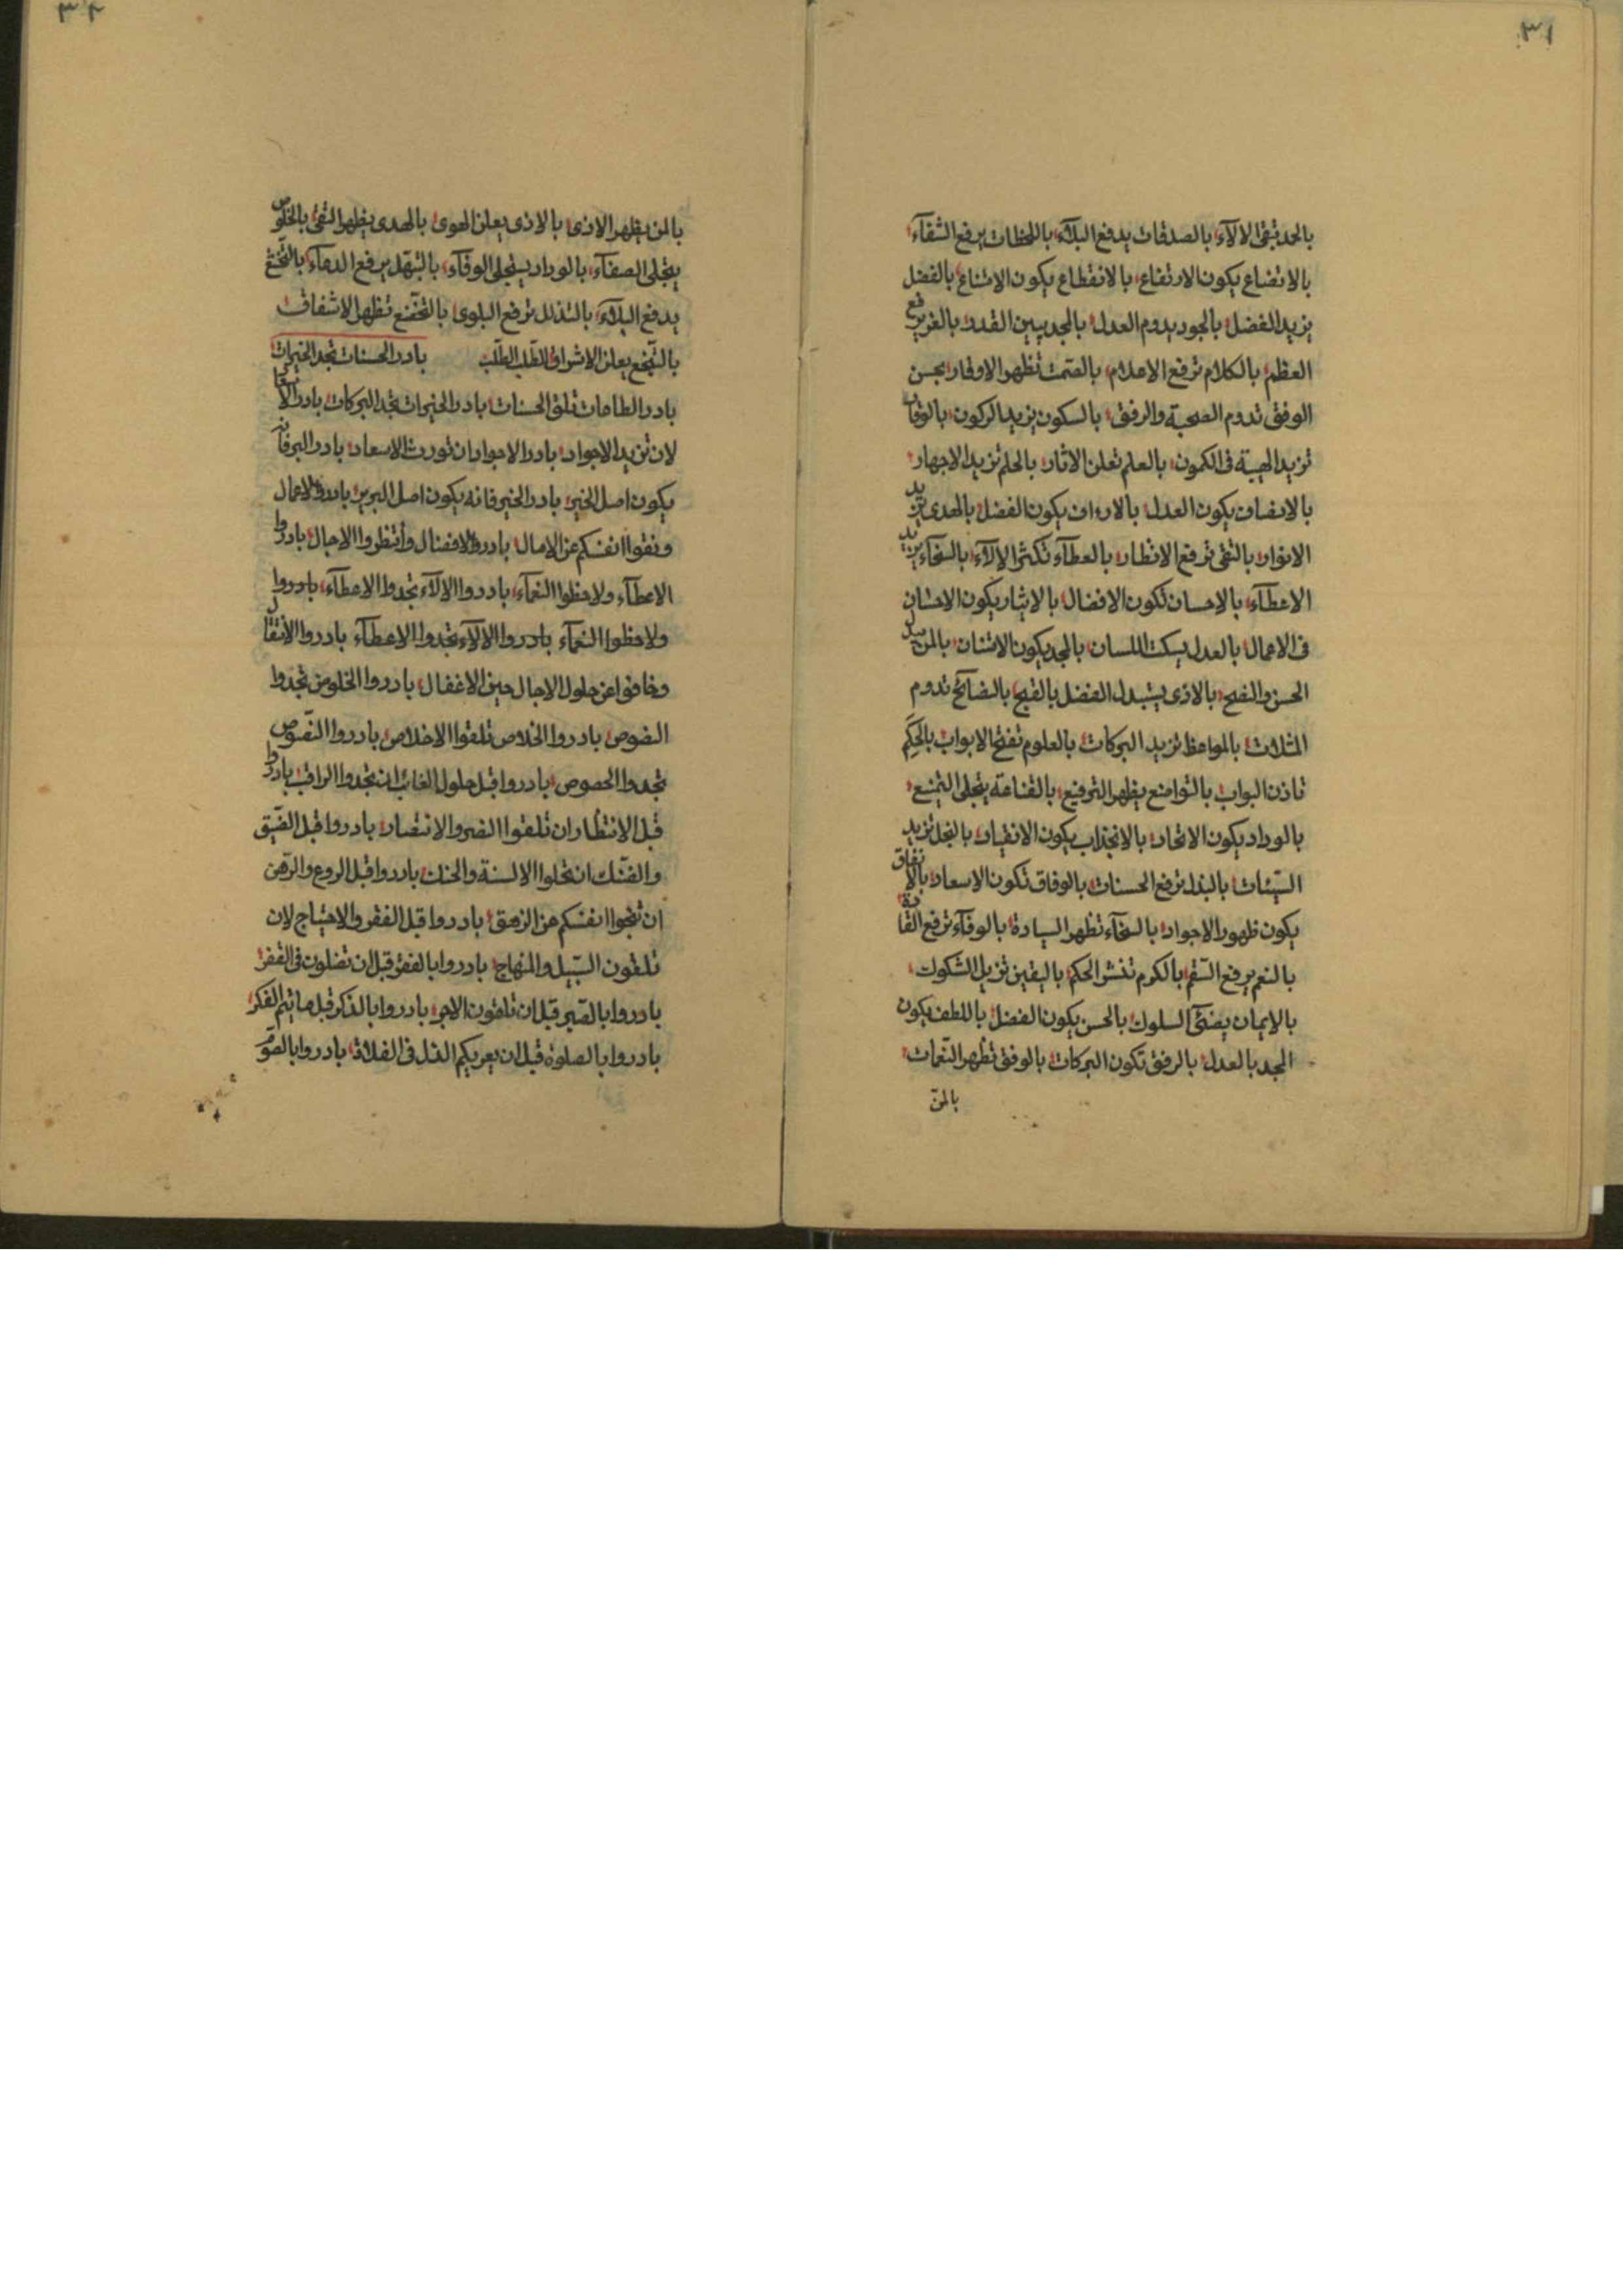 ٣١
بالحمد تبقى الآلاء بالصدقات يدفع البلاء باللحظات يرفع الشقاء
بالاتضاع يكون الارتفاع بالانقطاع يكون الامتناع بالفضل
يزيد الفضل بالجود يدوم العدل بالمجد يبين القدر بالعز يرفع
العظم بالكلام ترفع الاعلام بالصمت تظهر الاوقار بحسن
الوفق تدوم الصحبة والرفق بالسكون يزيد الركون بالوقار
تزيد الهيبة فى الكمون بالعلم تعلن الاثار بالحلم تزيد الاجهار
بالانصاف يكون العدل يكون الفضل بالهدى تزيد
الانوار بالتقى ترفع الانظار بالعطآء تكثر الآلاء بالسخآء يزيد
الاعطآء بالاحسان تكون الافضال بالايثار يكون الاحسان
فى الاعمال بالعدل يسكت اللسان بالمجد يكون الامتنان بالمن
الحسن والقبح بالاذى يستبدل الفضل بالقبح بالنصائح تدوم
بالمواعظ تزيد البركات بالعلوم تفتح الابواب بالحكم
تاذن البواب بالتواضع يظهر الترفيع بالقناعة يتجلى التمنع
بالوداد يكون الاتحاد بالانجذاب يكون الانقياد بالبخل تزيد
السيئات بالبذل ترفع الحسنات بالوفاق تكون الاسعاد بالانفاق
يكون ظهور الاجواد بالسخآء تظهر السيادة بالوفآء ترفع
بالنعم يرفع السقم بالكرم تنشر الحكم باليقين تزيل الشكوك
بالايمان يضئ السلوك بالحسن يكون الفضل باللطف يكون
المجد بالعدل بالرفق تكون البركات بالوفق تظهر النعمات
بالمنّ
٣٢
بالمن يظهر الاذى بالاذى يعلن الهوى بالهدى يظهر التقى بالخلوص
يتجلى الصفآء بالوداد يستجلى الوفآء بالتبهل يرفع الدعآء
يدفع البلاء بالتذلل ترفع البلوى بالتخضع تظهر الاشفاق
يعلن الاشراق بادر الحسنات تجد الخيرات
بادر الطاعات تلق الحسنات بادر الخيرات تجد البركات بادر
لان تزيد الاجواد بادر الاجواد ان تورث الاسعاد بادر البر فانه
يكون اصل الخير بادر الخير فانه يكون اصل البرين بادروا الاعمال
ونقوا انفسكم عن الامال بادروا الافضال وانتظروا الاجال بادروا
الاعطآء ولاحظوا النعمآء بادروا الآلاء تجدوا الاعطآء بادروا
ولاحظوا النعمآء بادروا الآلاء تجدوا الاعطآء بادروا الانتقال
وخافوا عن حلول الاجال حين الاغفال بادروا الخلوص تجدوا
بادروا الخلاص تلقوا الاخلاص بادروا
تجدوا بادروا قبل حلول ان تجدوا بادروا
قبل الانتظار ان تلقوا والانتصار بادروا قبل الضيق
والضنك ان تخلوا الالسنة والحنك بادروا قبل الروع
ان تنجوا انفسكم عن الزهق بادروا قبل الفقر والاحتياج لان
تلقون السبيل والمنهاج بادروا بالفقر قبل ان تضلون فى القفر
بادروا بالصبر قبل ان تلقون الاجر بادروا بالذكر قبل
بادروا بالصلوة قبل ان فى الفلاة بادروا بالصوم